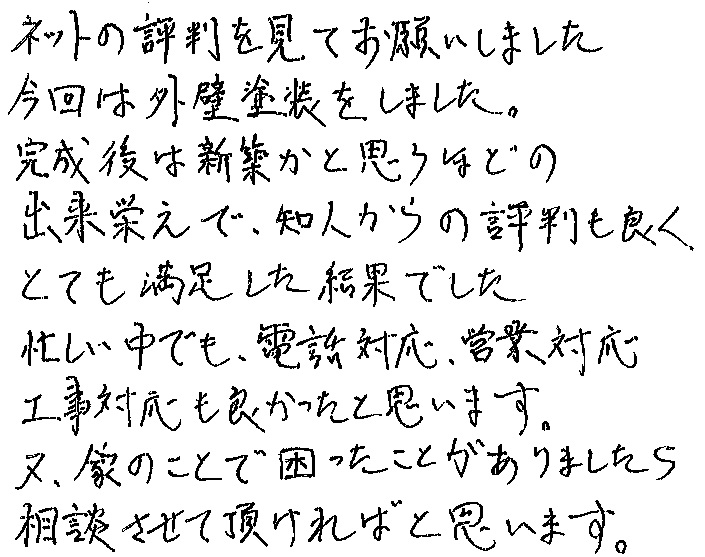 ネットの評判を見てお願いしました
今回は外壁塗装をしました。
完成後は新築かと思うほどの
出来栄えで、知人からの評判も良く
とても満足した結果でした
忙しい中でも、電話対応、営業対応
工事対応も良かったと思います。
又、家のことで困ったことがありましたら
相談させて頂ければと思います。